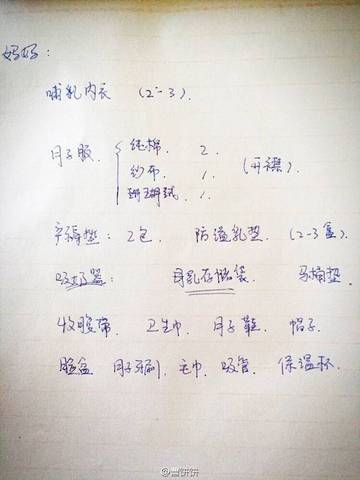 妈妈:
哺乳内衣 (2-3).
月子服 { 纯棉. 2.
纱布 1. (开襟).
珊瑚绒 1.
产褥垫: 2包 防溢乳垫. (2-3盒).
吸奶器: 母乳存储袋. 马桶垫.
收腹带. 卫生巾. 月子鞋. 帽子.
脸盆 月子牙刷. 毛巾. 吸管. 保温杯.